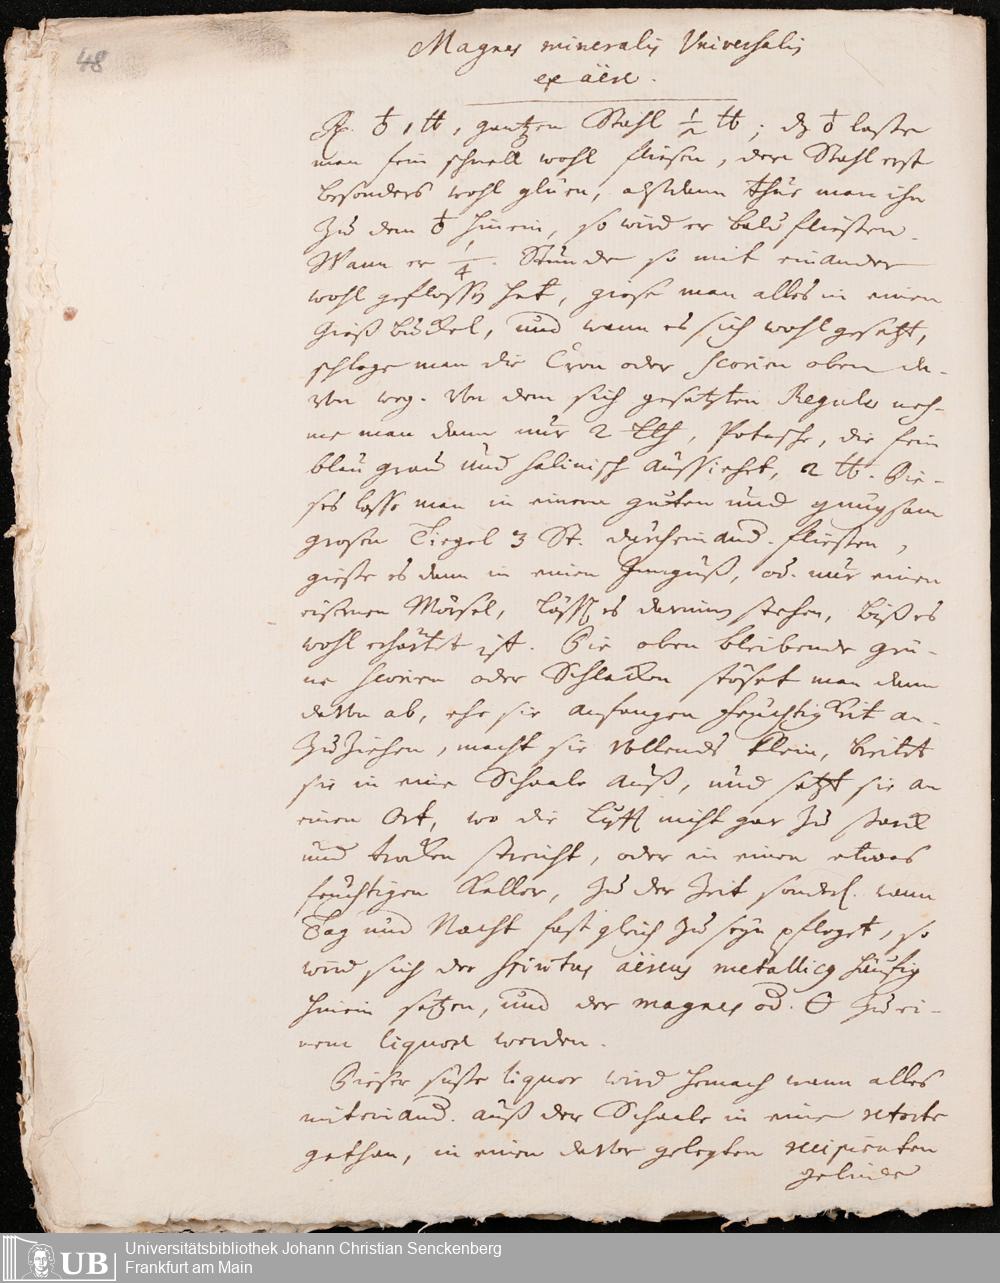 48
Magnes mineralis Universalis
ex aëre.
℞. ♁ 1 ℔, gantzen Stahl ½ ℔; dz ♁ laße
man fein schnell wohl fließen, den Stahl erst
besonders wohl glüen, alßdann thue man ihn
zu dem ♁ hinein, so wird er bald fließen.
Wann er ¼. Stunde so mit einander
wohl gefloßen hat, gieße man alles in einen
Gieß Buckel, und wann es sich wohl gesetzt,
schlage man die Cron oder scorien oben da-
von weg. Von dem sich gesetzten Regulo neh-
me man dann nur 2 Lth, Potasche, die fein
blau grau und salinisch außsiehet, 2 ℔. Die-
ses lasse man in einem guten und gnugsam
großen Tiegel 3 St. durcheinand. fließen,
gieße es dann in einen Innguß, od. nur einen
eißernen Mörsel, läßt es darinn stehen, biß es
wohl erhärtet ist. Die oben bleibende grü-
ne scorien oder Schlacken stößet man dann
davon ab, ehe sie anfangen feuchtigkeit an-
zuziehen, macht sie vollends klein, breitet
sie in eine Schaale auß, und setzt sie an
einen Ort, wo die Lufft nicht gar zu starck
und trocken streicht, oder in einen etwas
feuchtigen Keller, zu der Zeit sonderl. wann
Tag und Nacht fast gleich zu seyn pfleget, so
wird sich der spiritus aëreus metallicus häufig
hinein setzen, und der magnes od. zu ei-
nem liquor werden.
Dieser süße liquor wird hernach wann alles
miteinand. auß der Schaale in eine retorte
gethan, in einen davor gelegten recipienten
gelinde
UB
Universitätsbibliothek Johann Christian Senckenberg
Frankfurt am Main